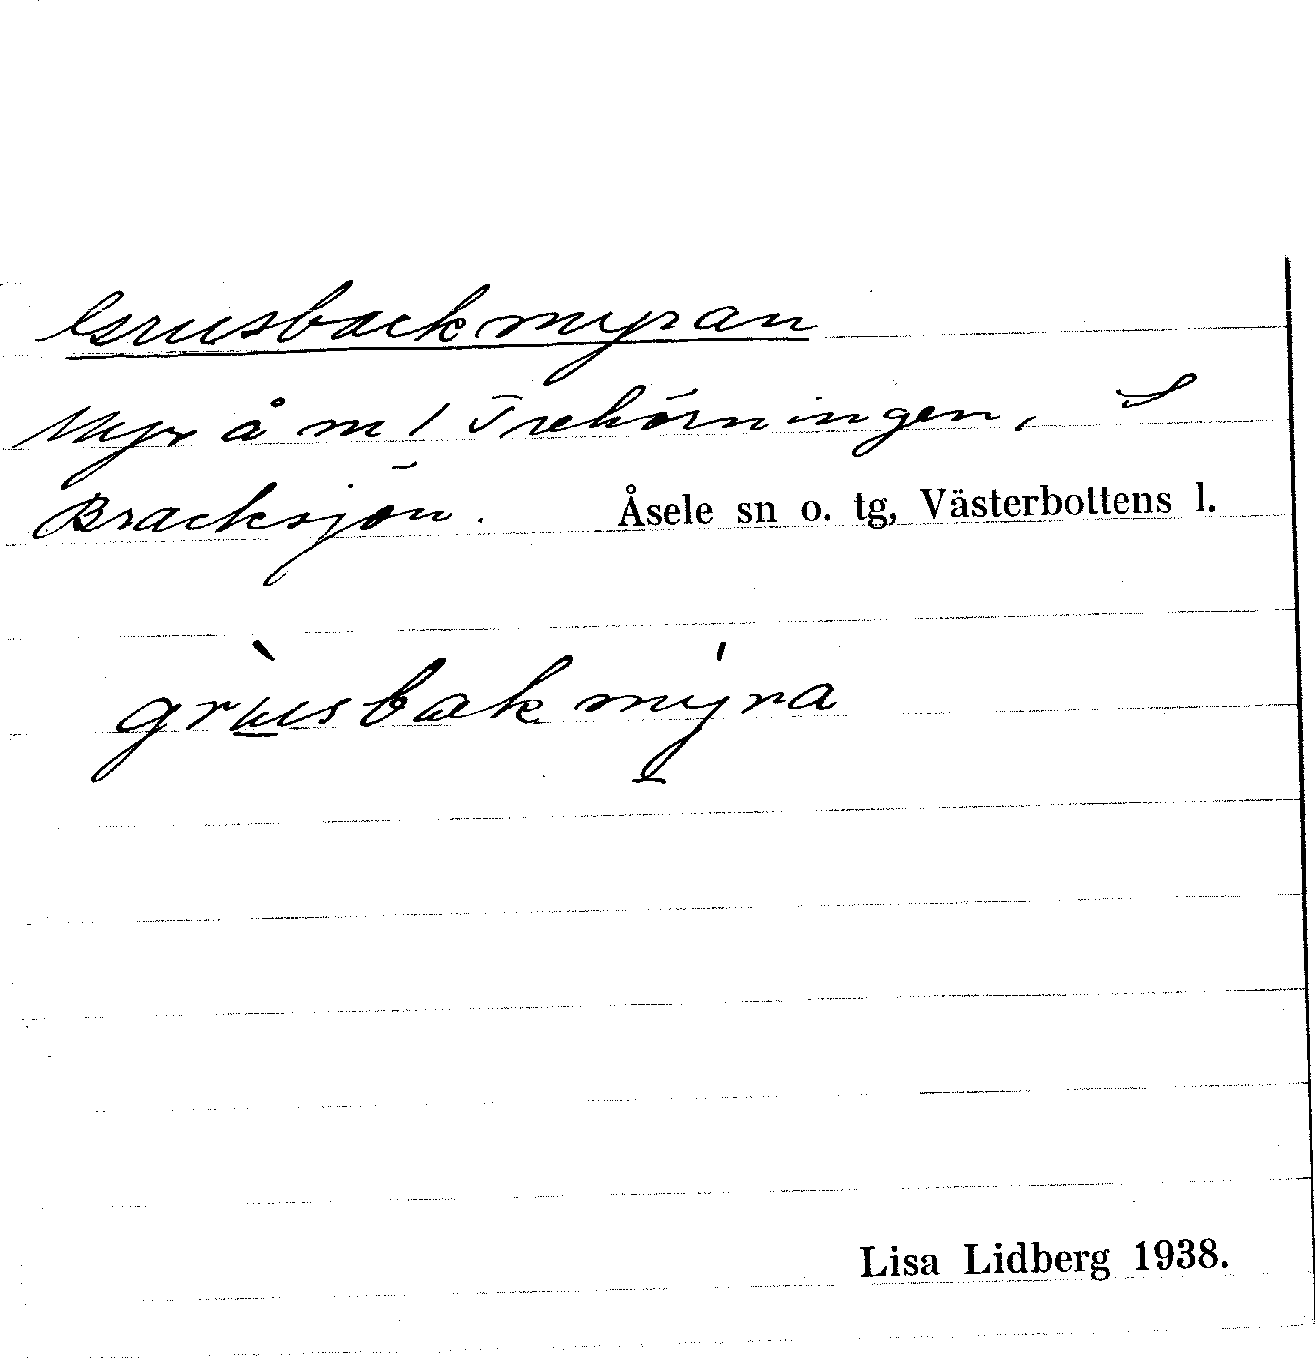 Grusbackmyran
Myr å m / Trehörningen, S
Bracksjön. Åsele sn o. tg, Västerbottens l.
grùsbakmýra
Lisa Lidberg 1938.